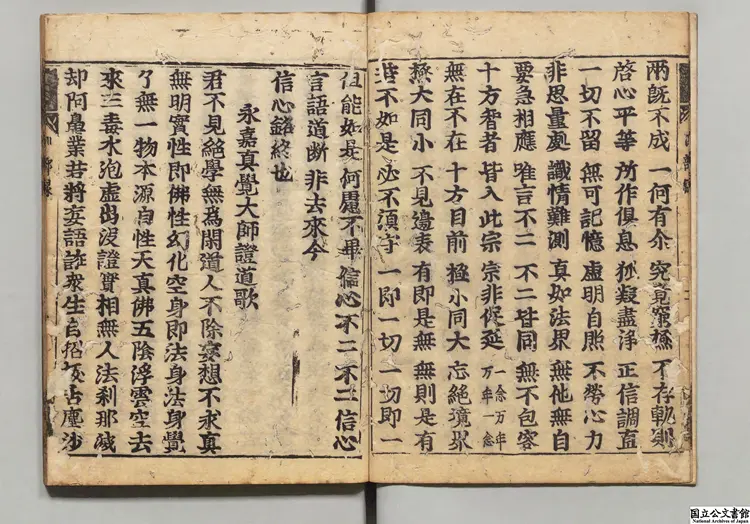 兩既不成 一何有尒 究竟窮極 不存軌則
啓心平等 所作俱息 狐疑盡淨 正信調直
一切不留 無可記憶 虛明自照 不勞心力
非思量處 識情難測 真如法界 無他無自
要急相應 唯言不二 不二皆同 無不包容
十方智者 皆入此宗 宗非促延 一念万年 万年一念
無在不在 十方目前 極小同大 忘絶境界
極大同小 不見邊表 有即是無 無則是有
若不如是 必不須守 一即一切 一切即一
但能如是何慮不畢信心不二不二信心
言語道斷 非去來今
信心銘終也
永嘉真覺大師證道歌
君不見絶學無為閑道人不除妄想不求真
無明實性即佛性幻化空身即法身法身覺
了無一物本源自性天真佛五陰浮雲空去
來三毒水泡虛出沒證實相無人法刹那滅
却阿鼻業若將妄語誑衆生自招拔舌塵沙
国立公文書館
National Archives of Japan